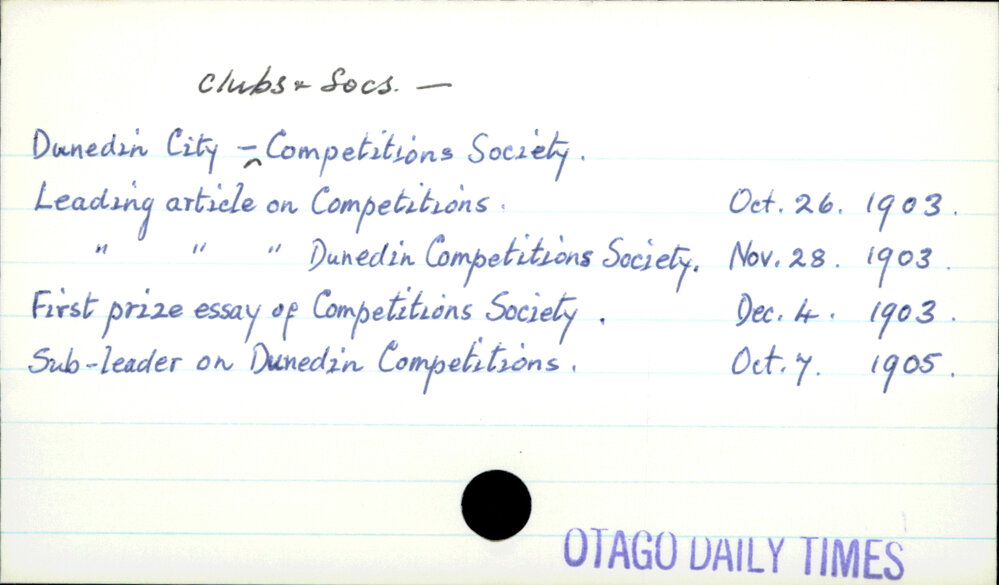 Clubs & Socs. —
Dunedin City -‸ Competitions Society.
Leading article on Competitions. Oct. 26. 1903.
" " " Dunedin Competitions Society. Nov. 28. 1903.
First prize essay of Competitions Society. Dec. 4. 1903.
Sub-leader on Dunedin Competitions. Oct. 7. 1905.
OTAGO DAILY TIMES